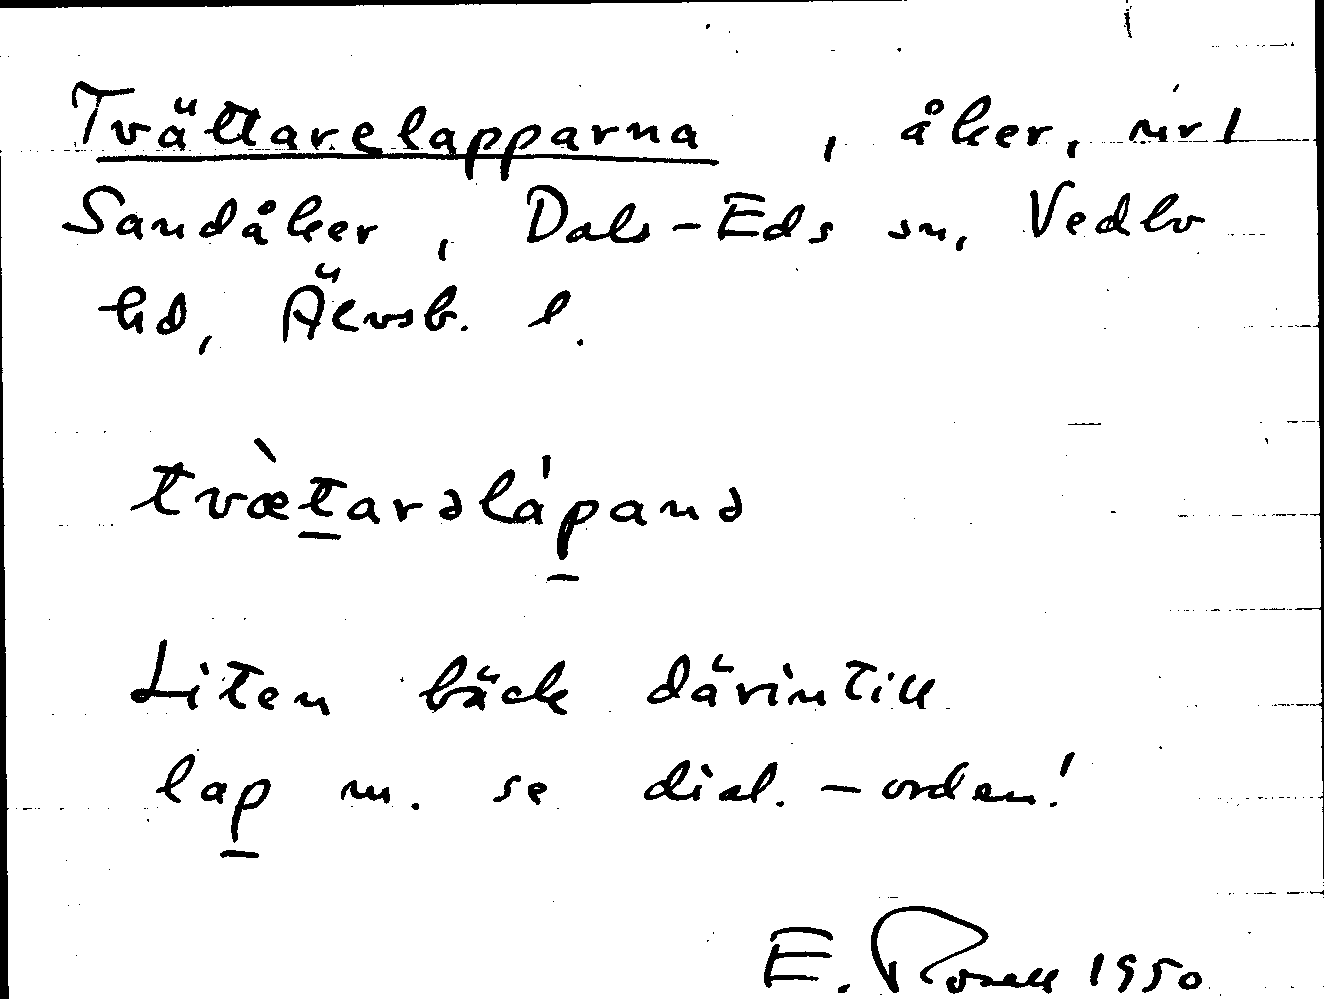 Tvättarelapparna, åker, nr 1
Sandåker, Dals-Eds sn, Vedbo
hd, Älvsb. l.
tvæ̀t̲arəláp̲anə
Liten bäck därintill
lap̲ m. se dial.-orden!
E. Rosell 1950